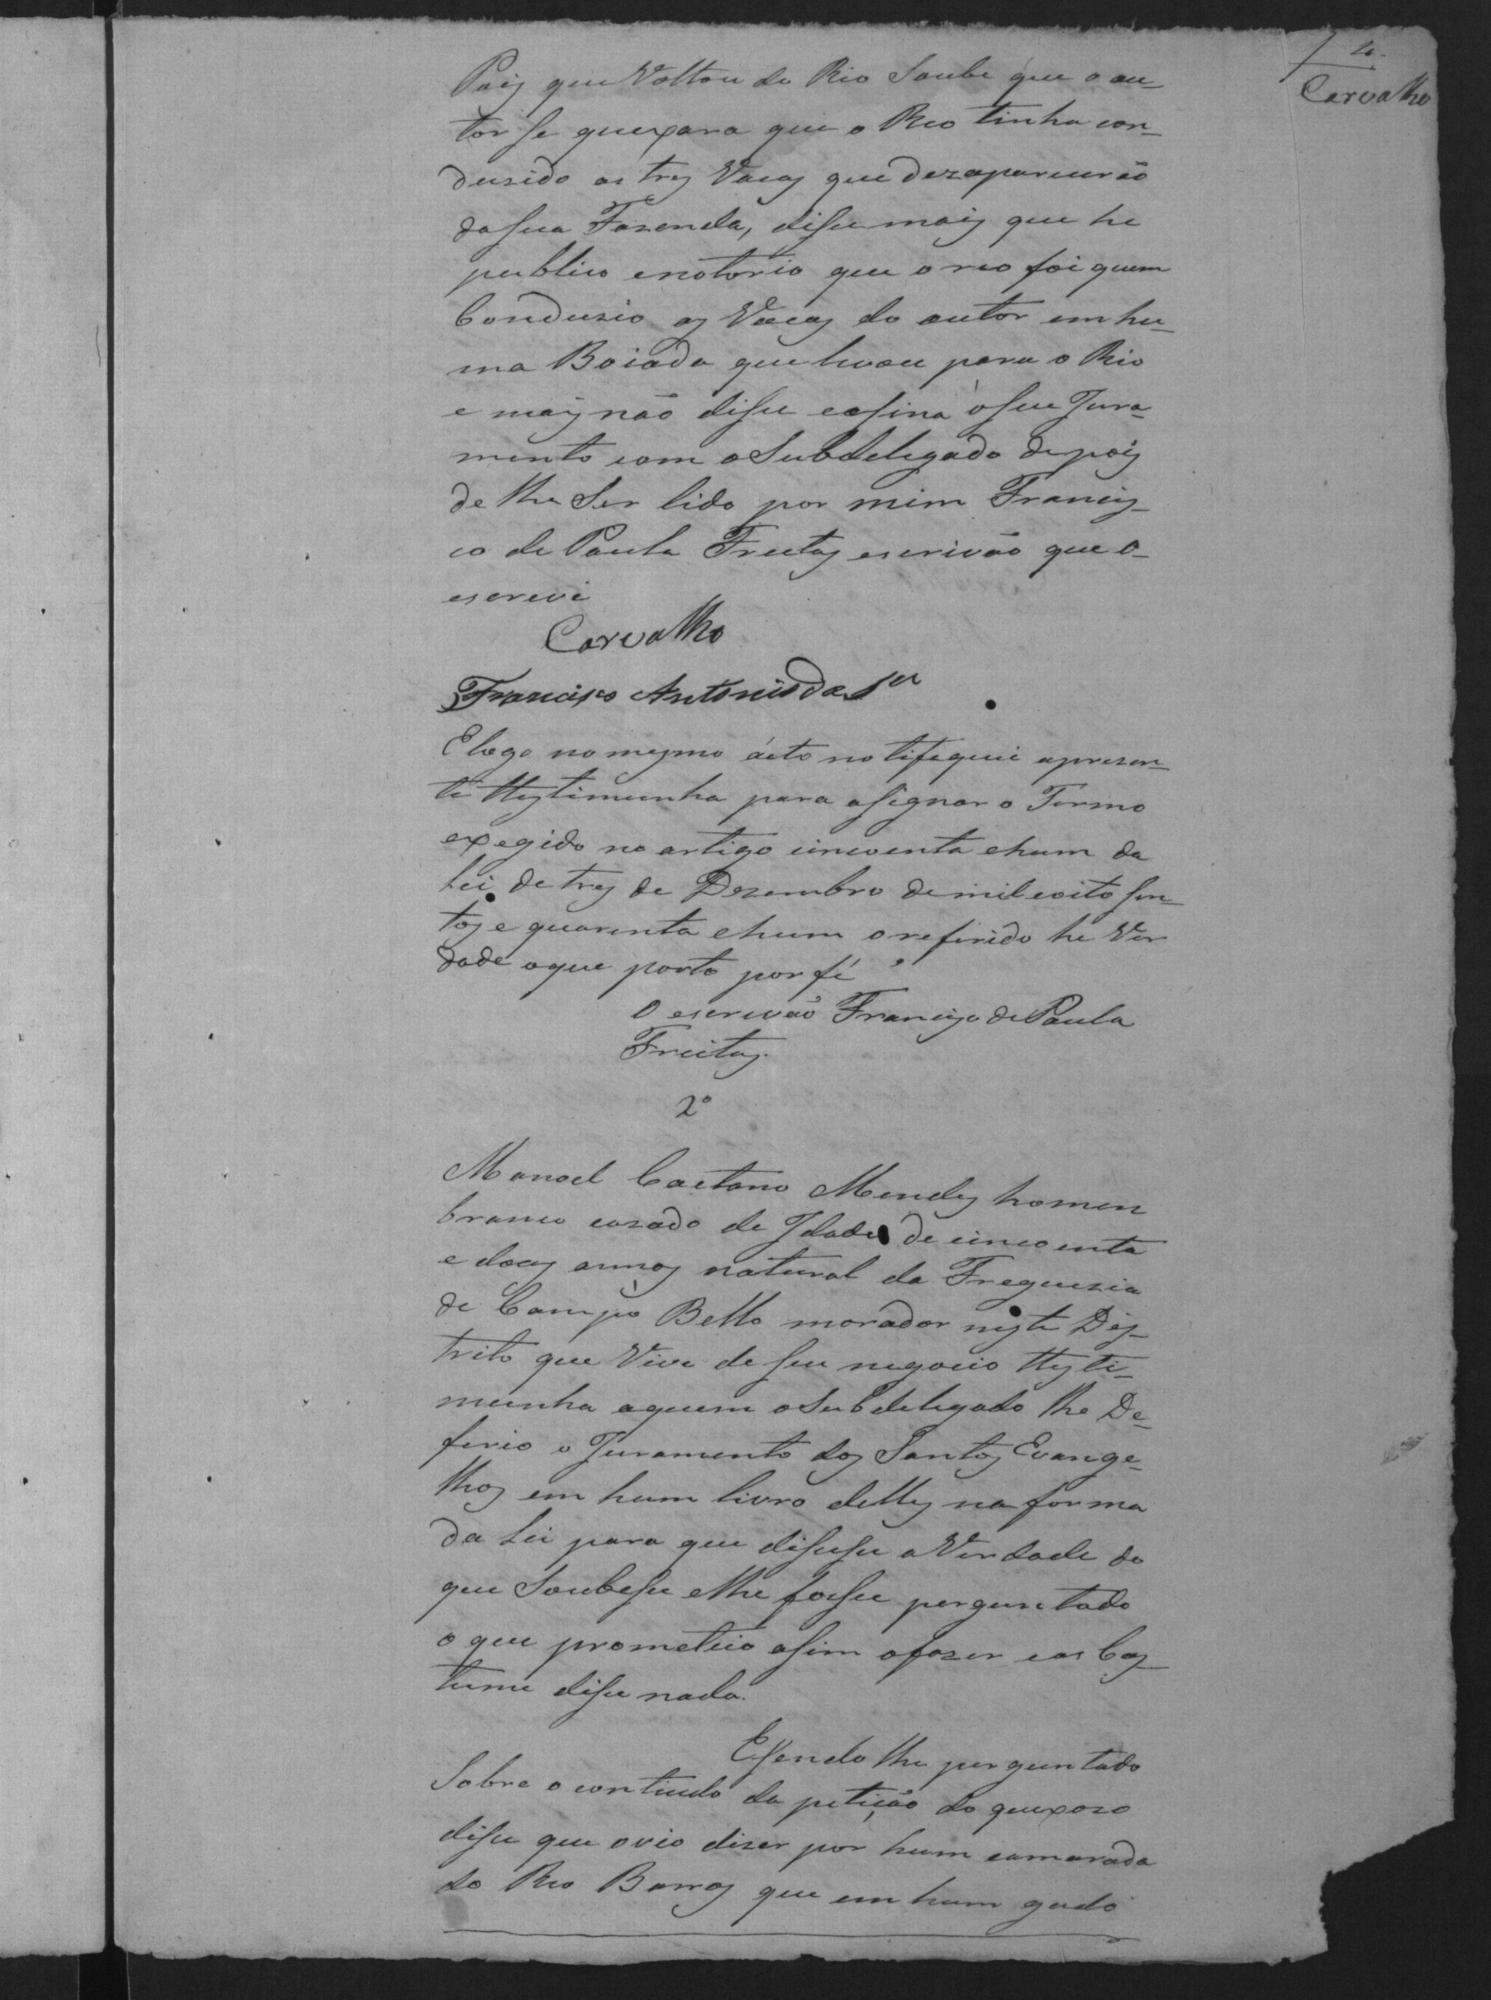 Carvalho
Pois que Voltou do Rio Soube que o au-
tor se quexara que o Reo tinha con-
dusido as tres Vacas que dezaparecerão
da sua Fazenda, dise mais que he
publico enotorio que o reo foi quem
Condusio as Vacas do autor em hu-
ma Boiada que levou para o Rio
e mais não dise easina o seu Jura-
mento com o Subdelegado depois
de lhe Ser lido por mim Francis-
co de Paula Freitas escrivão que o-
escrevi
Carvalho
Francisco Antonio da Sa
E logo no mesmo ácto notifequei apresen-
te testimunha para asignar o Termo
exegido no artigo cincoenta ehum da
Lei de tres de Dezembro de mil eoito sen-
tos e quarenta ehum o referido he Ver
dade oque porto por fé
O escrivão Francisco de Paula
Freitas.
2º
Manoel Caetano Mendes homem
branco casado de Idade de cincoenta
e dous annos natural da Freguezia
de Campo Bello morador neste Des-
trito que Vive de seu negocio testi-
munha aquem o Subdelegado lhe De-
ferio o Juramento dos Santos Evange-
lhos em hum livro delles na forma
da Lei para que disese a Verdade do
que Soubese elhe fose perguntado
o que prometeio asim o fazer eao Cos-
tume dise nada.
E sendo lhe perguntado
Sobre o contiudo da petição do quexozo
dise que ovio dizer por hum camarada
do Reo Barros que em hum gado